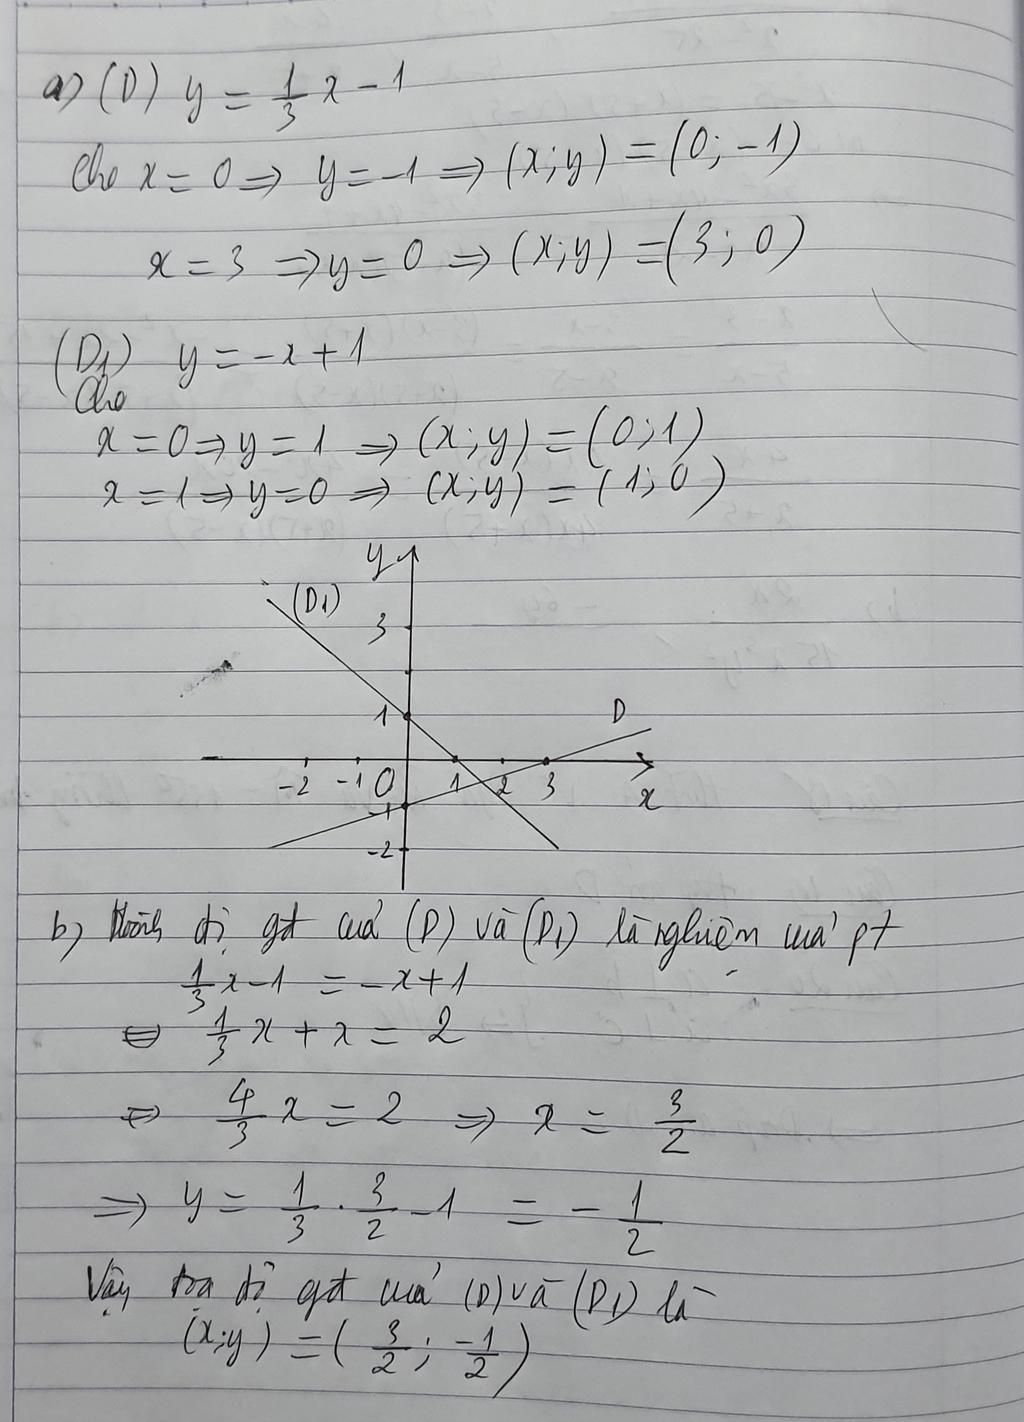 a) (D) y = 1/3 x - 1
Cho x = 0 ⇒ y = -1 ⇒ (x; y) = (0; -1)
x = 3 ⇒ y = 0 ⇒ (x; y) = (3; 0)
(D1) y = -x + 1
Cho
x = 0 ⇒ y = 1 ⇒ (x; y) = (0; 1)
x = 1 ⇒ y = 0 ⇒ (x; y) = (1; 0)
y
(D1)
3
1
D
-2 -1 O 1 2 3 x
-1
-2
b) Hoành độ gđ của (D) và (D1) là nghiệm của pt
1/3 x - 1 = -x + 1
⇔ 1/3 x + x = 2
⇔ 4/3 x = 2 ⇒ x = 3/2
⇒ y = 1/3 . 3/2 - 1 = - 1/2
Vậy tọa độ gđ của (D) và (D1) là
(x; y) = ( 3/2 ; -1/2 )